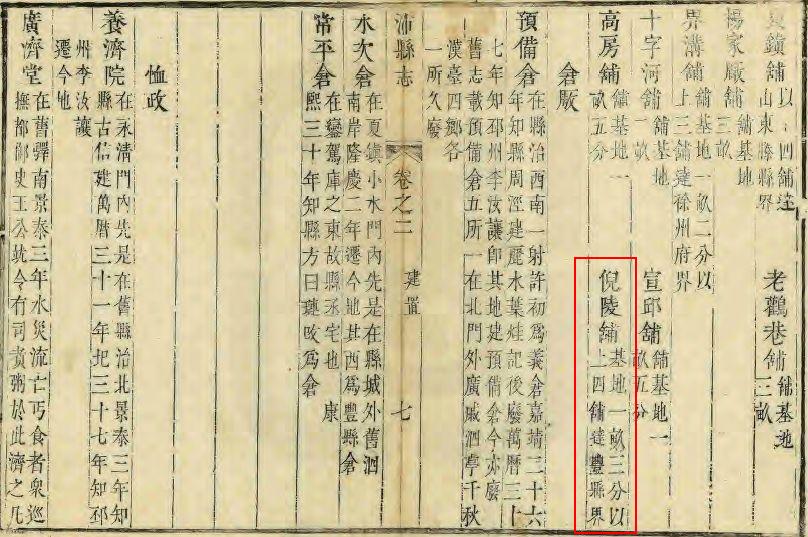 鎮舖以 四舖達
山東滕縣界
老鸛巷舖舖基地
三畝
楊家厰舖舖基地
三畝
界溝舖舖基地一畝二分以
上三舖達徐州府界
十字河舖舖基地
二畝
宣邱舖舖基地一
畝五分
高房舖舖基地一
畝五分
倪陵舖基地一畝三分以
上四舖達豐縣界
倉厫
預備倉在縣治西南一射許初為義倉嘉靖二十六
年知縣周涇建麗水葉烓記後廢萬曆三十
七年知邳州李汝讓卽其地建預備倉今亦廢
舊志載預備倉五所一在北門外廣戚泗亭千秋
漢臺四鄉各
一所久廢
沛縣志 卷之二 建置 七
水次倉在夏鎮小水門內先是在縣城外舊泗
南岸隆慶二年遷今地其西為豐縣倉
常平倉在鑾駕庫之東故縣丞宅也康
熙三十年知縣方曰璉改為倉
恤政
養濟院在永清門內先是在舊縣治北景泰三年知
縣古信建萬曆三十一年圯三十七年知邳
州李汝讓
遷今地
廣濟堂在舊驛南景泰三年水災流亡丐食者衆巡
撫都御史王公竑令有司煮粥於此濟之凡